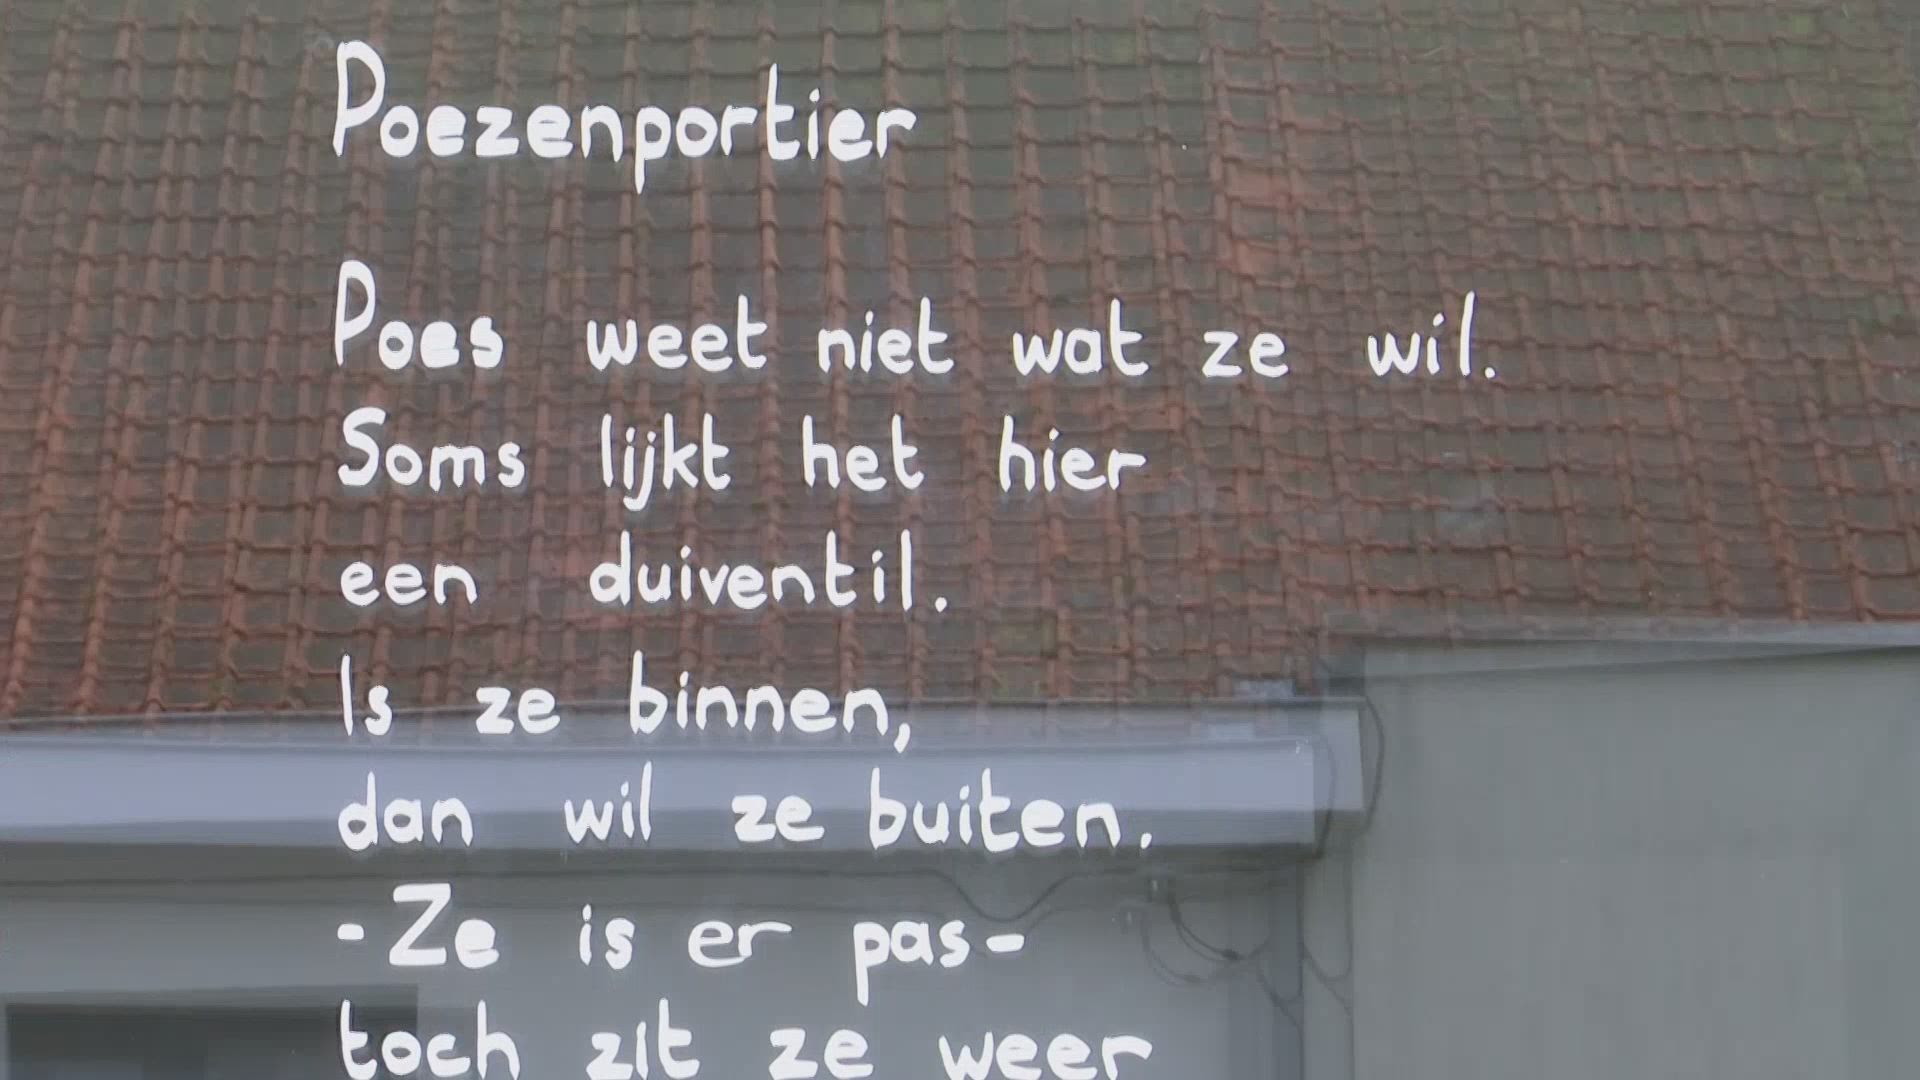 Poezenportier
Poes weet niet wat ze wil.
Soms lijkt het hier
een duiventil.
Is ze binnen,
dan wil ze buiten.
-Ze is er pas-
toch zit ze weer